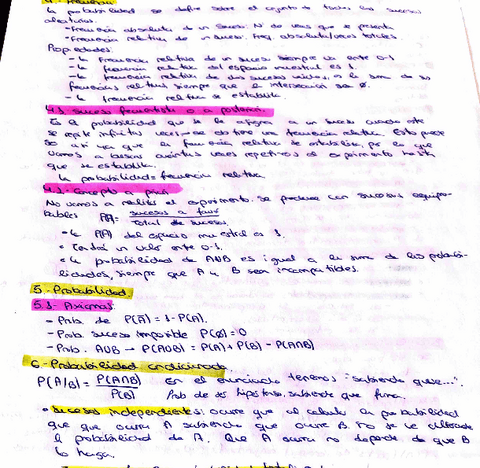 4. Frecuencia
La probabilidad se define sobre el conjunto de todos los sucesos
aleatorios.
-Frecuencia absoluta de un suceso: Nº de veces que se presenta
-Frecuencia relativa de un suceso: Freq. absoluta/veces totales.
Propiedades:
-La frecuencia relativa de un suceso siempre va entre 0-1
-La frecuencia relativa del espacio muestral es 1.
-La frecuencia relativa de dos sucesos unidos, es la suma de sus
frecuencias relativas siempre que la intersección sea Ø.
-La frecuencia relativa se estabiliza.
a posteriori
Es la probabilidad que se le asigna a un suceso cuando este
se repite infinitas veces se obtiene una frecuencia relativa. Esto
la frecuencia relativa se estabiliza, por lo que
vamos a buscar cuántas veces repetimos el experimento hasta
que se estabilice.
La probabilidad=frecuencia relativa.
Concepto a priori
No vamos a realizar el experimento. Se produce con sucesos equipro-
bables P(A)= sucesos a favor / Total de sucesos.
•La P(A) del espacio muestral es 1.
•Tendrá un valor entre 0-1.
•La probabilidad de AUB es igual a la suma de las probabi-
lidades, siempre que A y B sean incompatibles.
5. Probabilidad.
5.1- Axiomas
- Prob. de P(Ā) = 1-P(A).
- Prob. suceso imposible P(Ø)=0
- Prob. AUB → P(AUB) = P(A)+P(B) - P(A∩B)
6-Probabilidad condicionada
P(A/B) = P(A∩B) / P(B) En el enunciado tenemos "sabiendo que...".
Prob de ser hipertenso sabiendo que fuma.
•Sucesos independientes: ocurre que al calcular la probabilidad
que que ocurra A sabiendo que ocurre B no se ve
la probabilidad de A. Que A ocurra no depende de que B
lo haga.